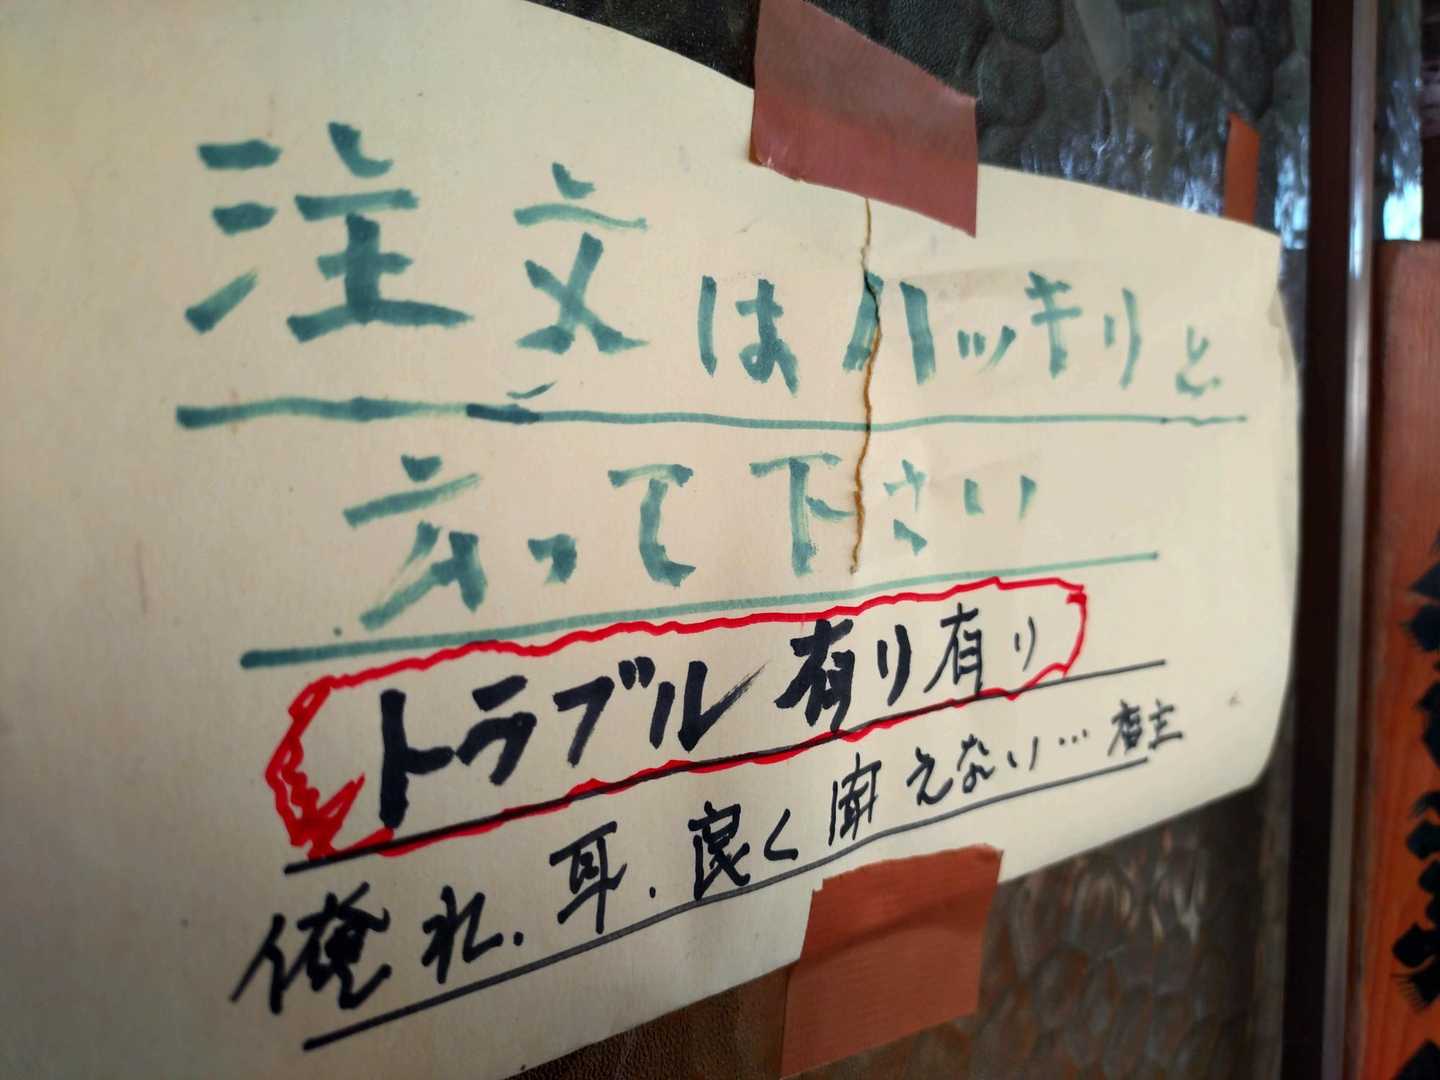 注文はハッキリと
云って下さい
トラブル有り有り
俺れ.耳.良く聞えない…店主